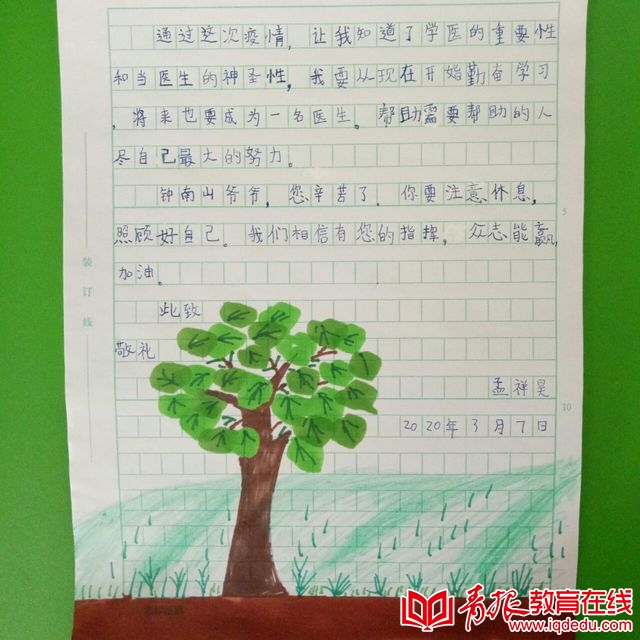 通过这次疫情，让我知道了学医的重要性
和当医生的神圣性，我要从现在开始勤奋学习
，将来也要成为一名医生。帮助需要帮助的人
尽自己最大的努力。
钟南山爷爷，您辛苦了，你要注意休息，
照顾好自己。我们相信有您的指挥，众志能赢，
加油。
此致
敬礼
孟祥昊
2020年3月7日
5
10
装订线
青报教育在线
www.iqdedu.com